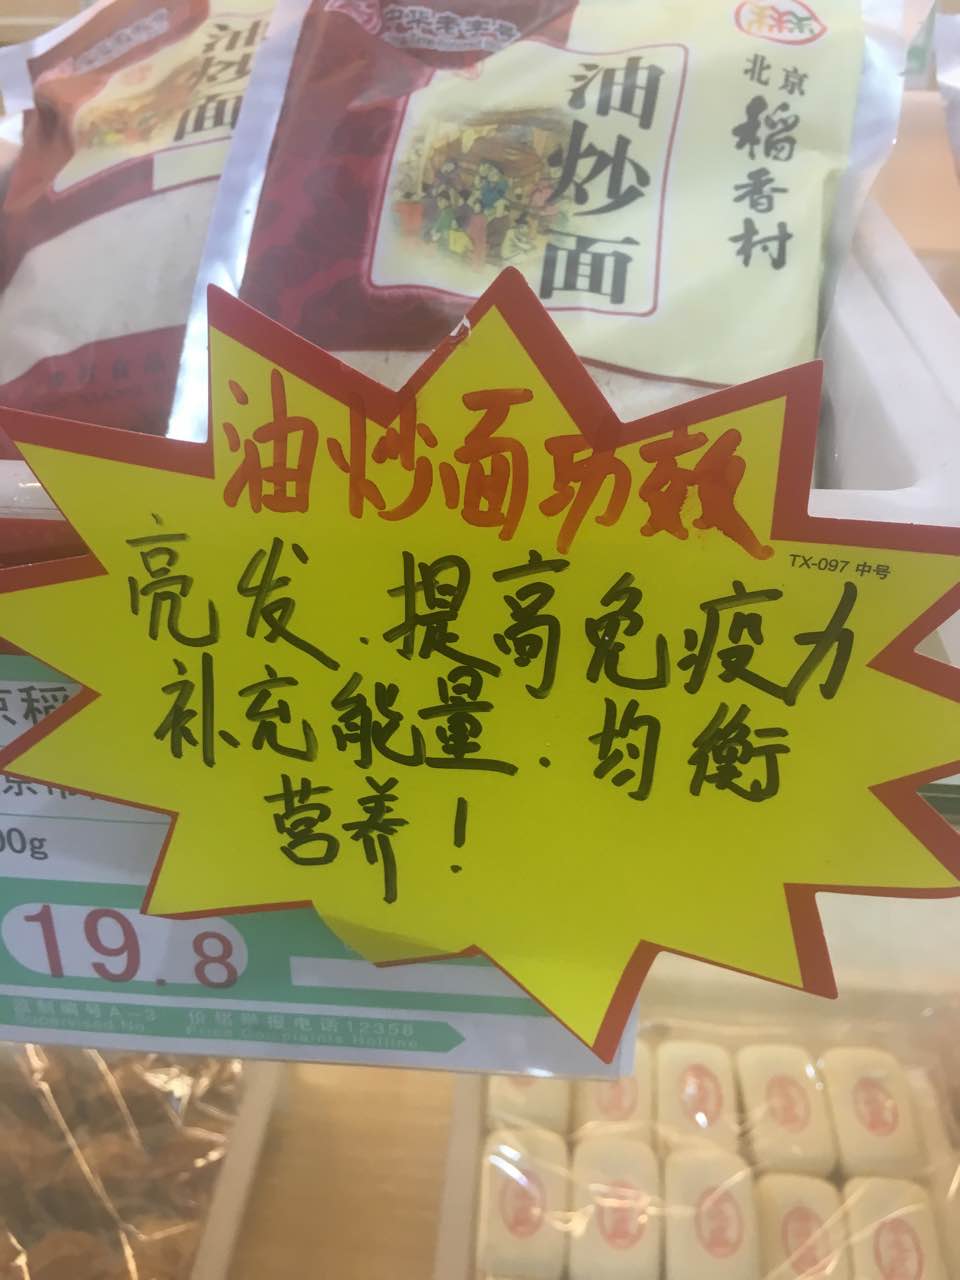 油炒面
北京
稻香村
油炒
面
油炒面功效
TX-097 中号
亮发.提高免疫力
补充能量.均衡
营养!
京稻
00g
19.8
监制编号A-3 价格举报电话12358